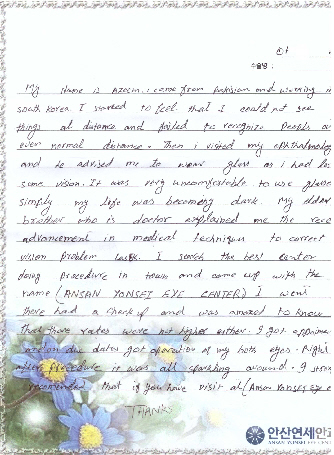 수술명 :
My name is Azeem. I came from Pakistan and working in
south Korea I started to feel that I could not see
things at distance and failed to recognize people on
even normal distance. Then i visited my
and he advised me to wear glass as i had lost
some vision. It was very uncomfortable to use glasses
simply my life was becoming dark. My elder
brother who is doctor explained me the
advancement in medical technique to correct
vision problem I search the best center
doing procedure in town and come up with the
name (ANSAN YONSEI EYE CENTER) I went
there had a check up and was amazed to know
that there rates were not higher either. I got
due dates got operation of my both eyes. Right
after procedure it was all sparkling around. I
recommend that if you have visit at (Ansan Yonsei eye
THANKS
안산연세안과
ANSAN YONSEI EYE